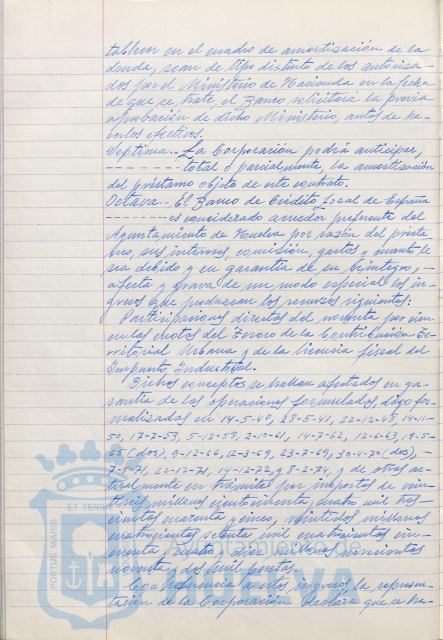 tablecer en el cuadro de amortización de la
deuda, sean de tipo distinto de los autoriza-
dos por el Ministerio de Hacienda en la fecha
de que se trate, el Banco solicitará la previa
aprobación de dicho Ministerio, antes de ha-
cerlos efectivos.
Septima.- La Corporación podrá anticipar,
- - - - - - - total o parcialmente, la amortización
del préstamo objeto de este contrato.
Octava.- El Banco de Crédito Local de España
- - - - - - - es considerado acreedor preferente del
Ayuntamiento de Huelva por razón del présta
mo, sus intereses, comisión, gastos y cuanto le
sea debido y en garantía de su reintegro, -
afecta y grava de un modo especial los in-
gresos que produzcan los recursos siguientes:
Participaciones directas del noventa por cien
en las cuotas del Tesoro de la Contribución Te-
rritorial Urbana y de la licencia fiscal del
Impuesto Industrial.
Dichos conceptos se hallan afectados en ga-
rantía de las operaciones formuladas, digo for-
malizadas en 14-5-49, 28-5-41, 22-12-48, 14-11-
50, 17-2-53, 5-12-58, 2-10-61, 14-7-62, 12-6-63, 19-5-
65 (dos), 9-12-66, 12-3-69, 23-7-69, 30-4-70 (dos), -
7-5-71, 22-12-71, 14-12-72, y 8-2-74, y de otras ac-
tualmente en trámite por importes de vein-
millones
cuatro mil tres-
cientas cuarenta y cinco, veintidos millones
cuatrocientas setenta mil cuatrocientas cin-
cuenta y cuatro y
millones
noventa y dos mil pesetas.
Con referencia a estos ingresos, la represen-
tación de la Corporación declara que se ha-
PORTUS MARIS
ET TERRAE
HUELVA